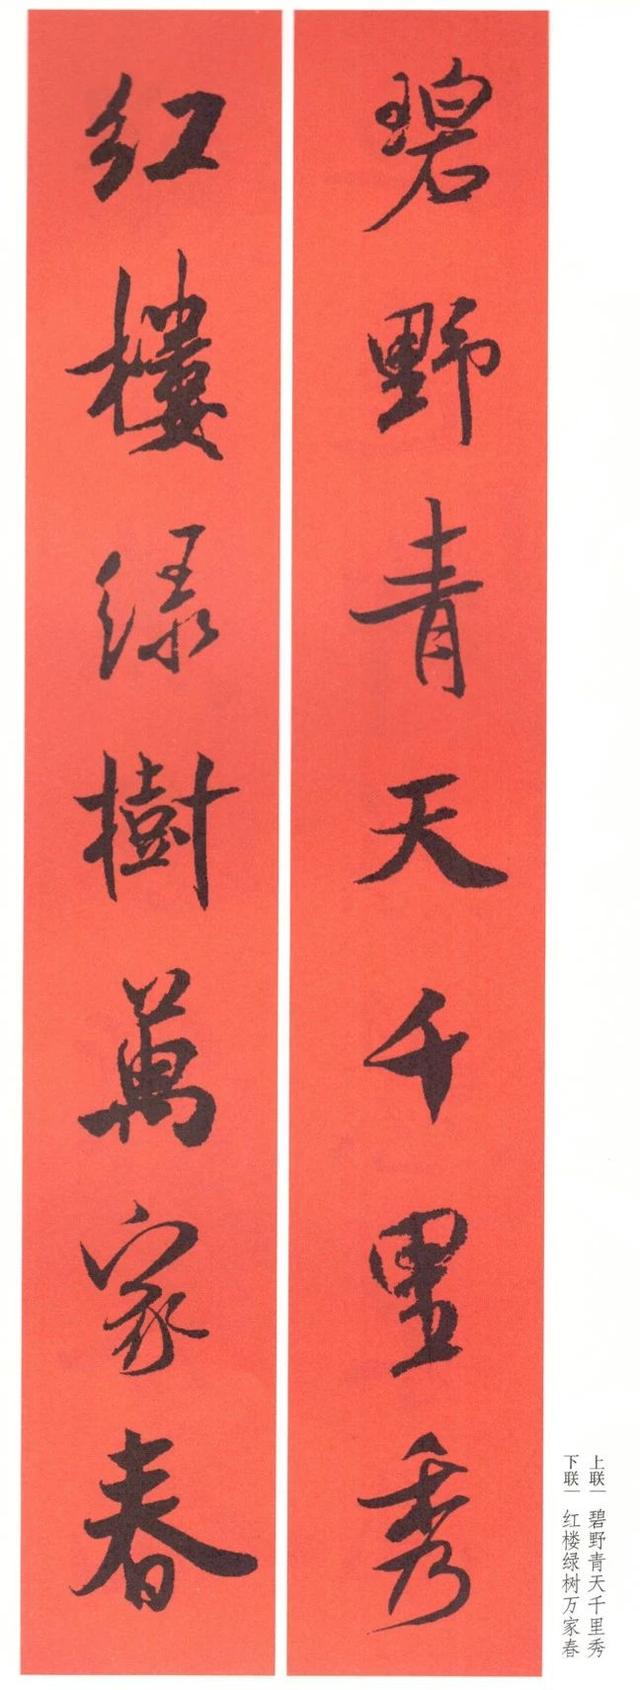 碧野青天千里秀
红樓绿樹萬家春
上联｜碧野青天千里秀
下联｜红楼绿树万家春